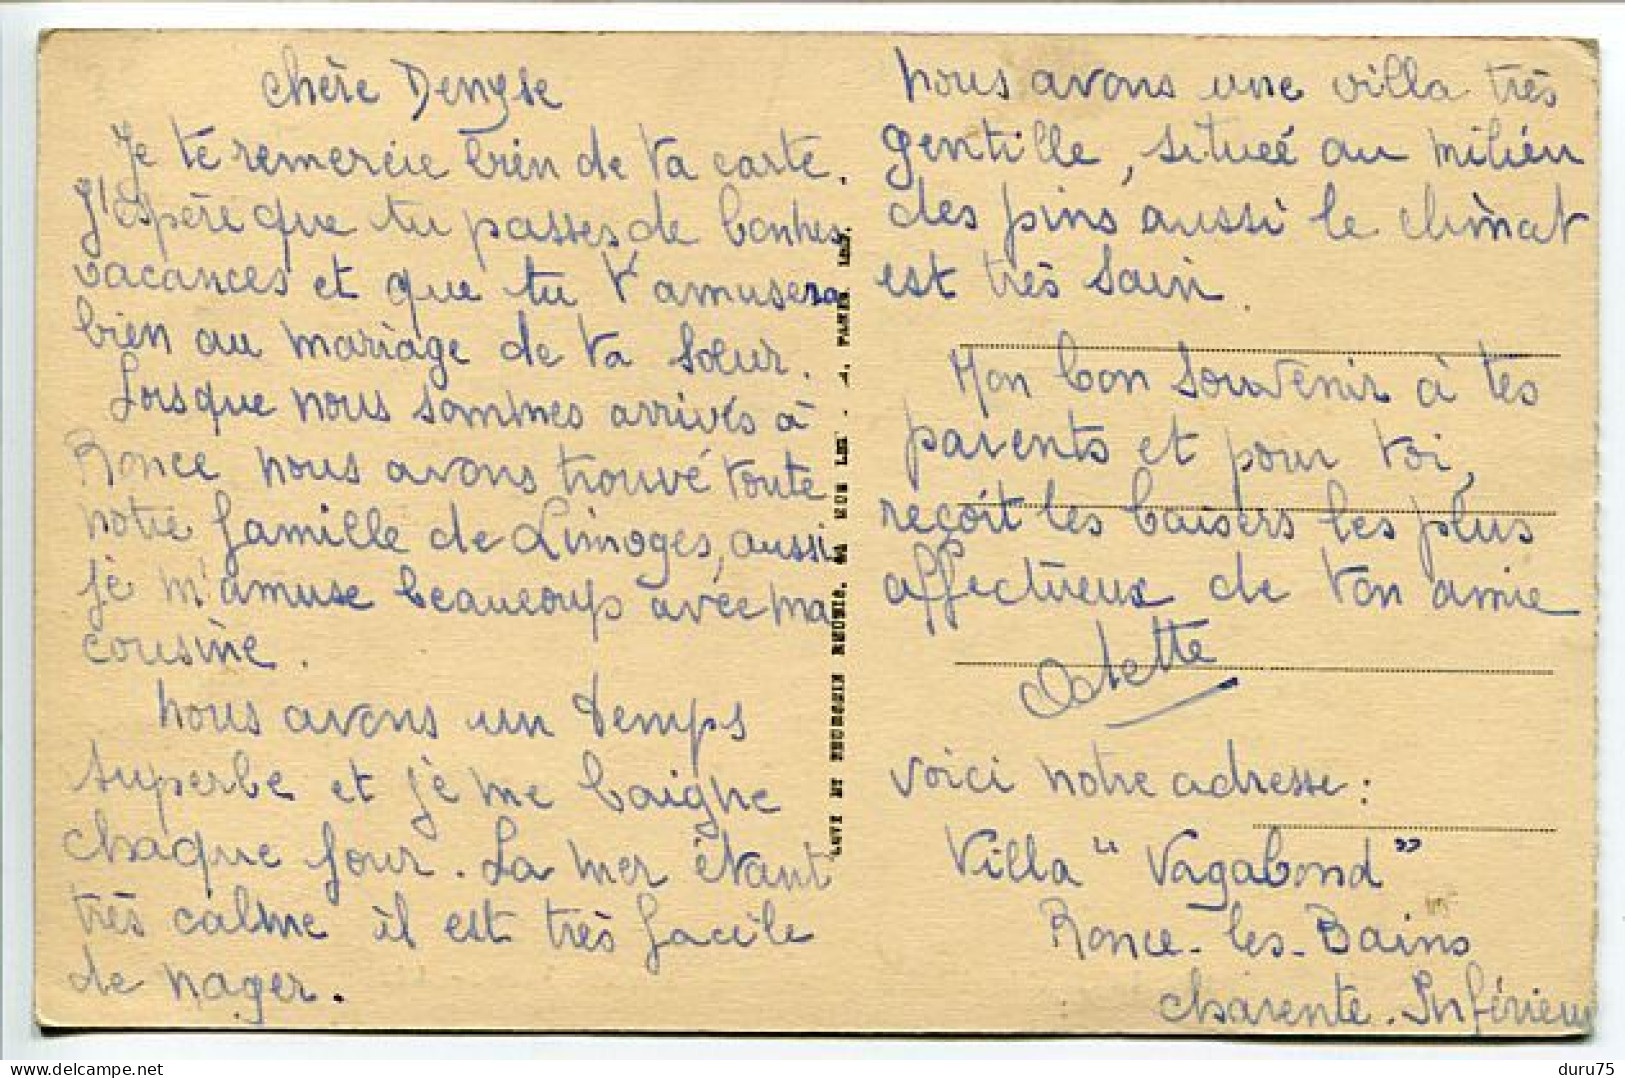 Chère Denyse
Je te remercie bien de ta carte.
J'espère que tu passes de bonnes
vacances et que tu t'amusera
bien au mariage de ta sœur.
Lorsque nous sommes arrivés à
Ronce nous avons trouvé toute
notre famille de Limoges, aussi
je m'amuse beaucoup avec ma
cousine.
Nous avons un temps
superbe et je me baigne
chaque jour. La mer étant
très calme il est très facile
de nager.
LEVY ET NEURDEIN REUNIS. 44 RUE LET
Nous avons une villa très
gentille, située au milieu
des pins aussi le climat
est très sain.
Mon bon souvenir à tes
parents et pour toi,
reçoit les baisers les plus
affectueux de ton amie
Odette
Voici notre adresse :
Villa "Vagabond"
Ronce-les-Bains
Charente-Inférieur
delcampe.net
duru75